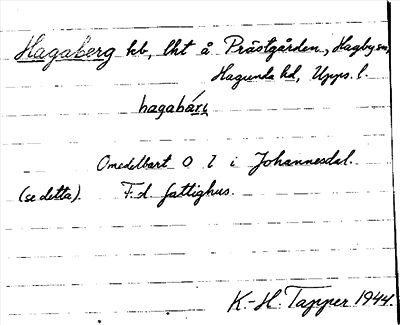 Hagaberg hb, lht å Prästgården, Hagby sn,
Hagunda hd, Upps. l.
hagabärj
Omedelbart O l i Johannesdal.
(se detta). F.d. fattighus.
K-H. Tapper 1944.